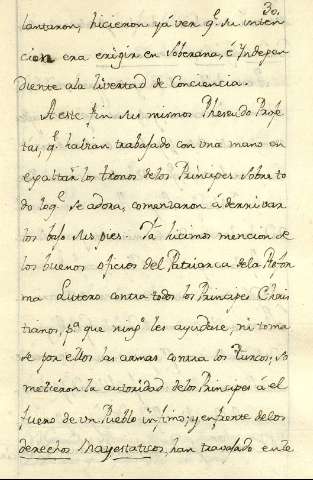 30.
lantaron, hicieron yá ver q.e su inten
cion era erigir en Soberana, é Yndepen
diente ala livertad de Conciencia.
A este fin sus mismos Pheseudo Profe
tas, q.e havian travajado con una mano en
exaltar los tronos delos Principes sobre to
do loq.e se adora, comenzaron á derrivar
los bajo sus pies. Ya hicimos mencion de
los buenos oficios del Patriarca dela Refor
ma Lutero contra todos los Principes Chris
tianos, p.a que ning.o les ayudase, ni toma
se por ellos las armas contra los Turcos; so
metieron la autoridad delos Principes á el
fuero de un Pueblo infimo; y enfrente delos
derechos Mayestaticos, han travajado en le